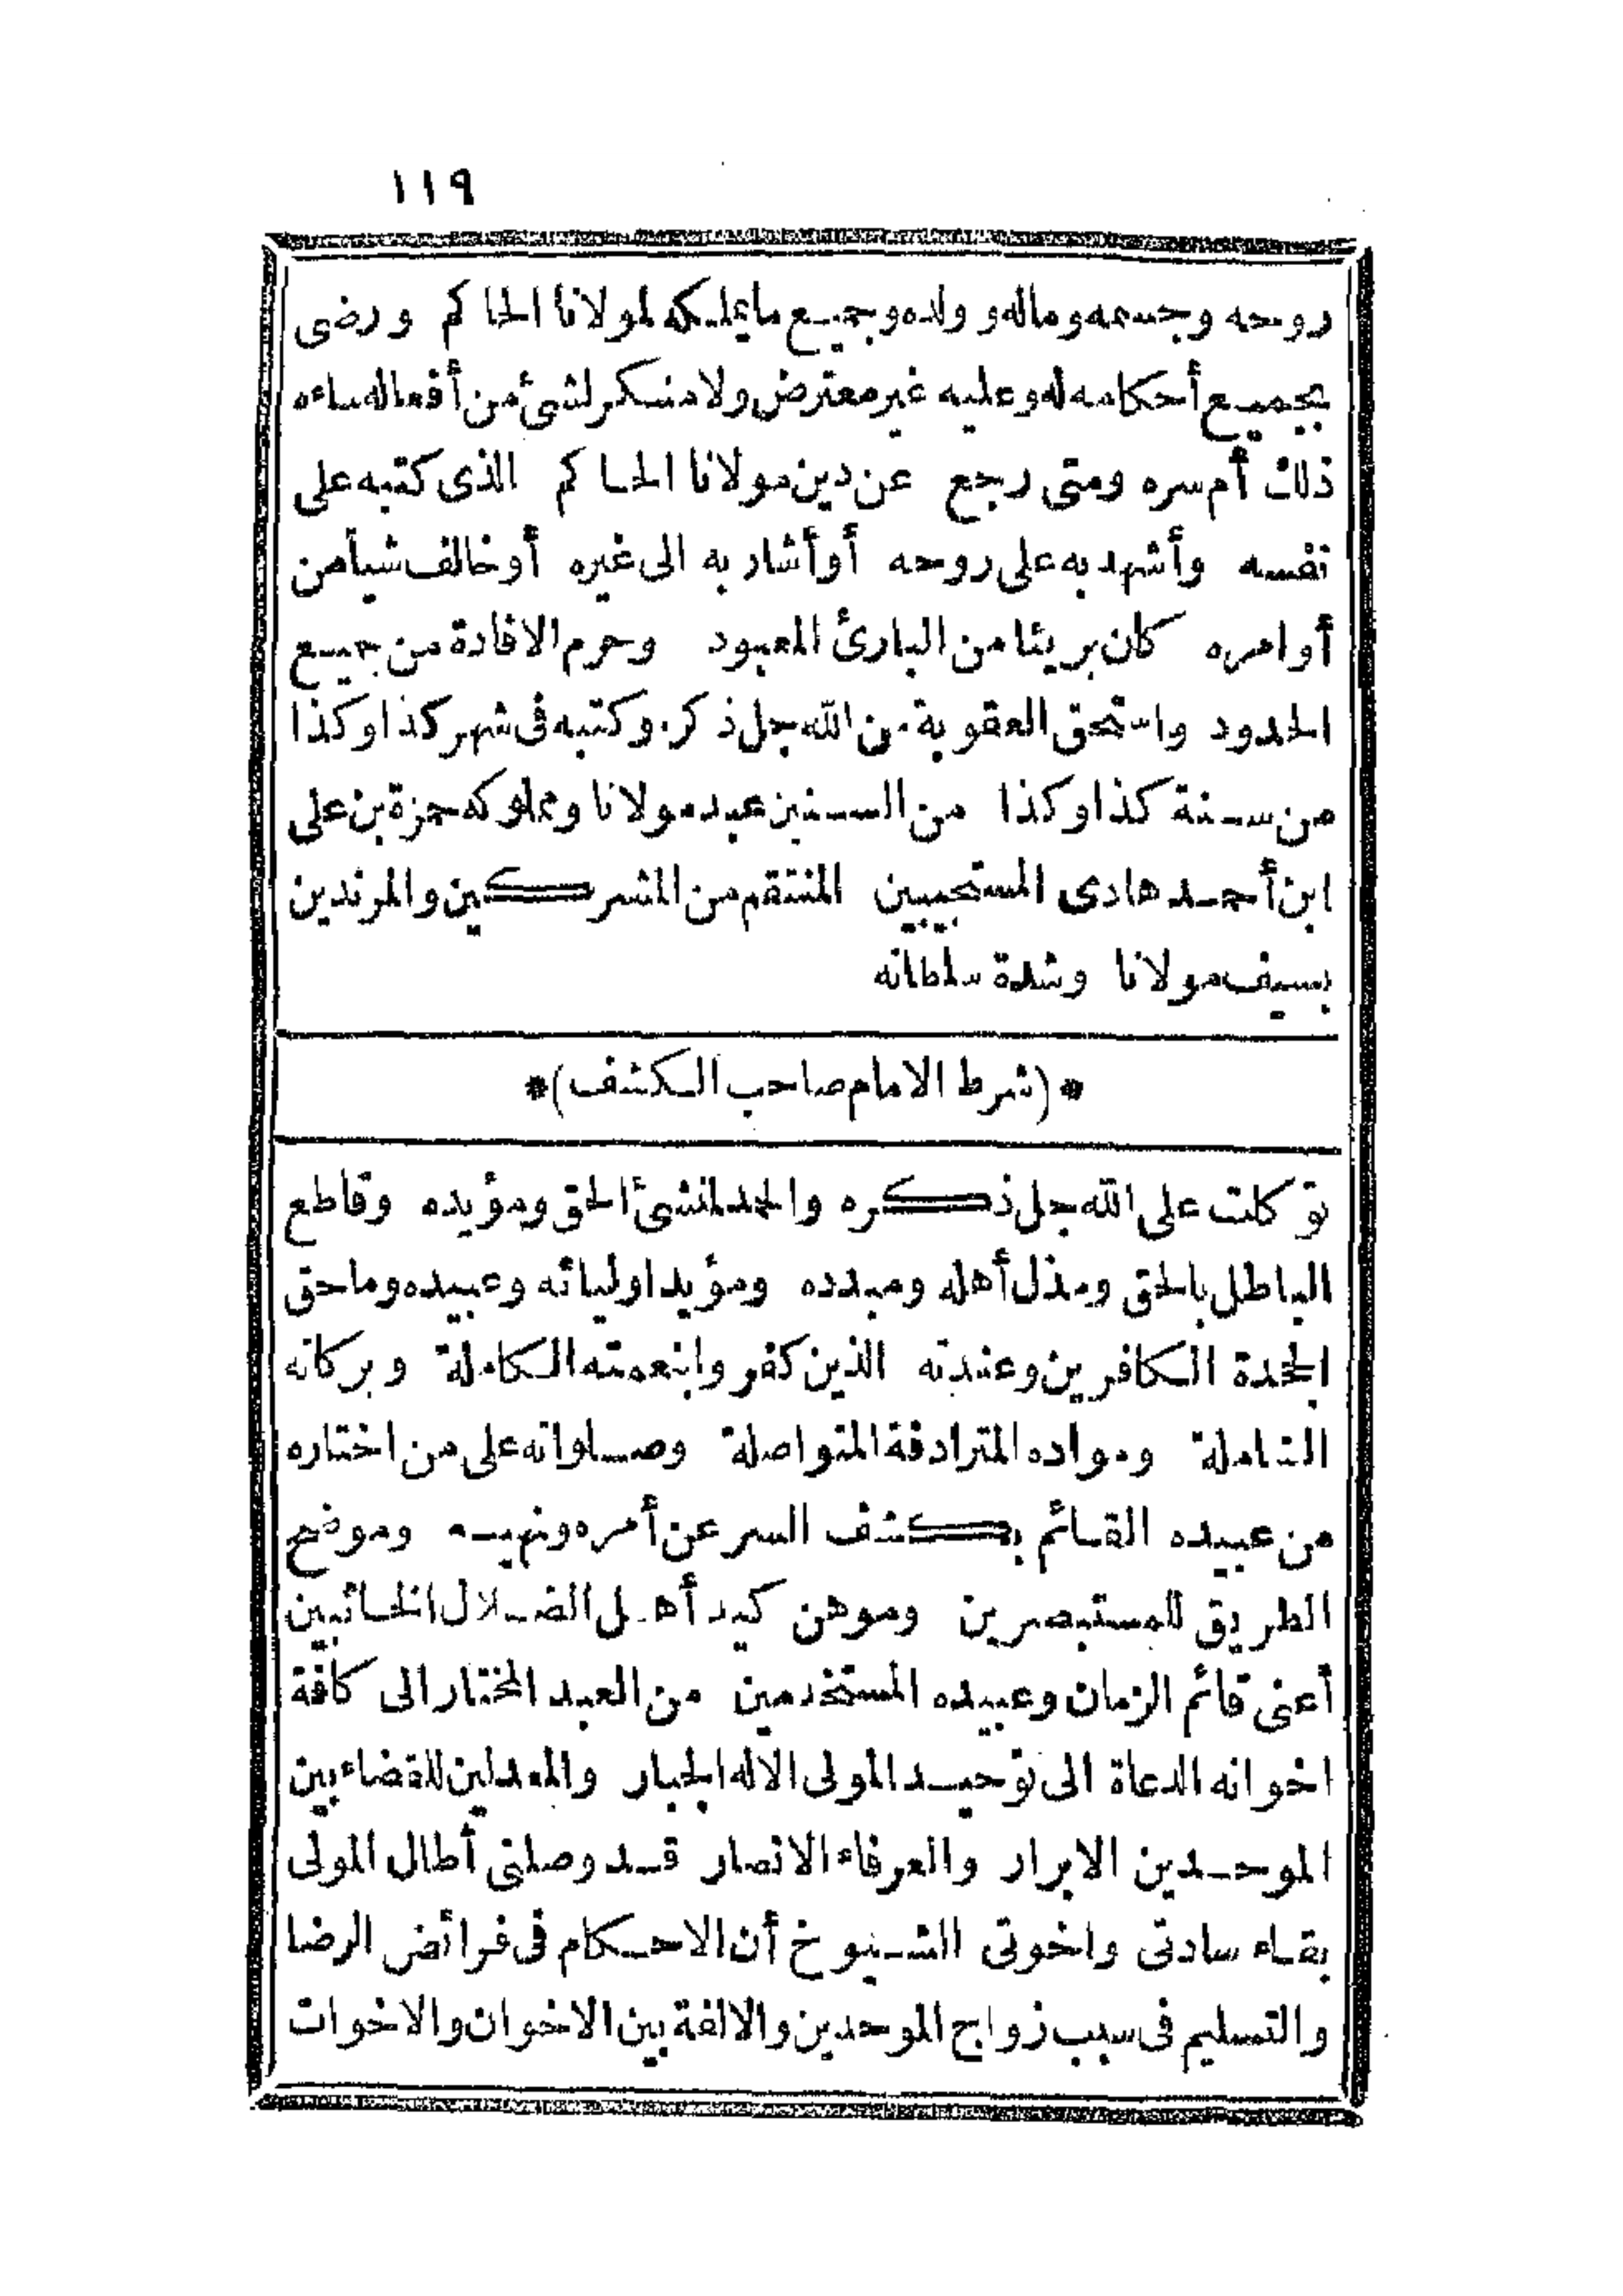 ١١٩
روحه وجسمه وماله و ولده وجميع ما يملكه لمولانا الحاكم ورضى
بجميع أحكامه له وعليه غير معترض ولا منكر لشئ من أفعاله ساءه
ذلك أم سره ومتى رجع عن دين مولانا الحاكم الذى كتبه على
نفسه وأشهد به على روحه أو أشار به الى غيره أو خالف شيأ من
أوامره كان بريئا من البارئ المعبود وحرم الافادة من جميع
الحدود واستحق العقوبة من الله جل ذكره وكتبه فى شهر كذا وكذا
من سنة كذا وكذا من السنين عبد مولانا ومملوكه حمزة بن على
ابن أحمد هادى المستجيبين المنتقم من المشركين والمرتدين
بسيف مولانا وشدة سلطانه
*(شرط الامام صاحب الكشف)*
توكلت على الله جل ذكره والحمد لمنشئ الحق ومؤيده وقاطع
الباطل بالحق ومذل أهله ومبدده ومؤيد اوليائه وعبيده وماحق
الجحدة الكافرين وعندته الذين كفروا بنعمته الكاملة وبركاته
الشاملة ومواده المترادفة المتواصلة وصلواته على من اختاره
من عبيده القائم بكشف السر عن أمره ونهيه وموضح
الطريق للمستبصرين وموهن كيد أهل الضلال الخائبين
أعنى قائم الزمان وعبيده المستخدمين من العبد المختار الى كافة
اخوانه الدعاة الى توحيد المولى الاله الجبار والمعدلين للقضاء بين
الموحدين الابرار والعرفاء الانصار قد وصلنى أطال المولى
بقاء سادتى واخوتى الشيوخ أن الاحكام فى فرائض الرضا
والتسليم فى سبب زواج الموحدين والالفة بين الاخوان والاخوات